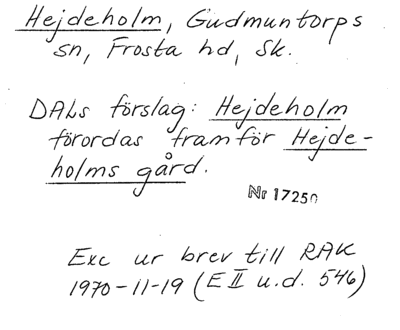 Hejdeholm, Gudmuntorps
sn, Frosta hd, Sk.
DALs förslag: Hejdeholm
förordas framför Hejde-
holms gård.
Nr 17250
Exc ur brev till RAK
1970-11-19 (E II u.d. 546)